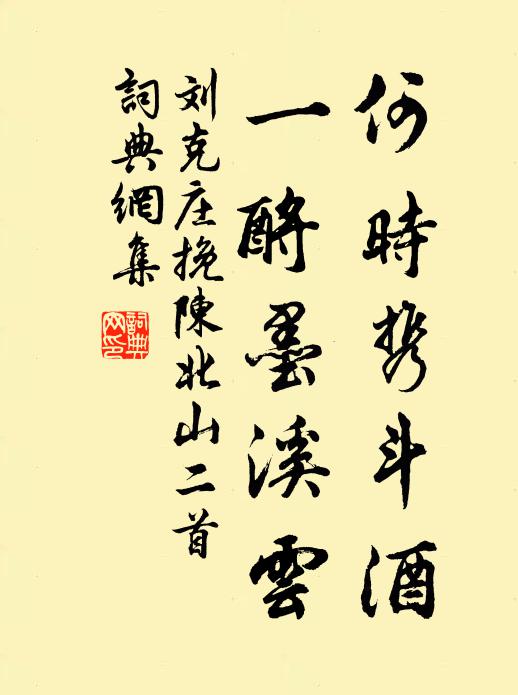 何時携斗酒
一酹墨溪雲
刘克庄挽陳北山二首
詞典網集
詞典網印